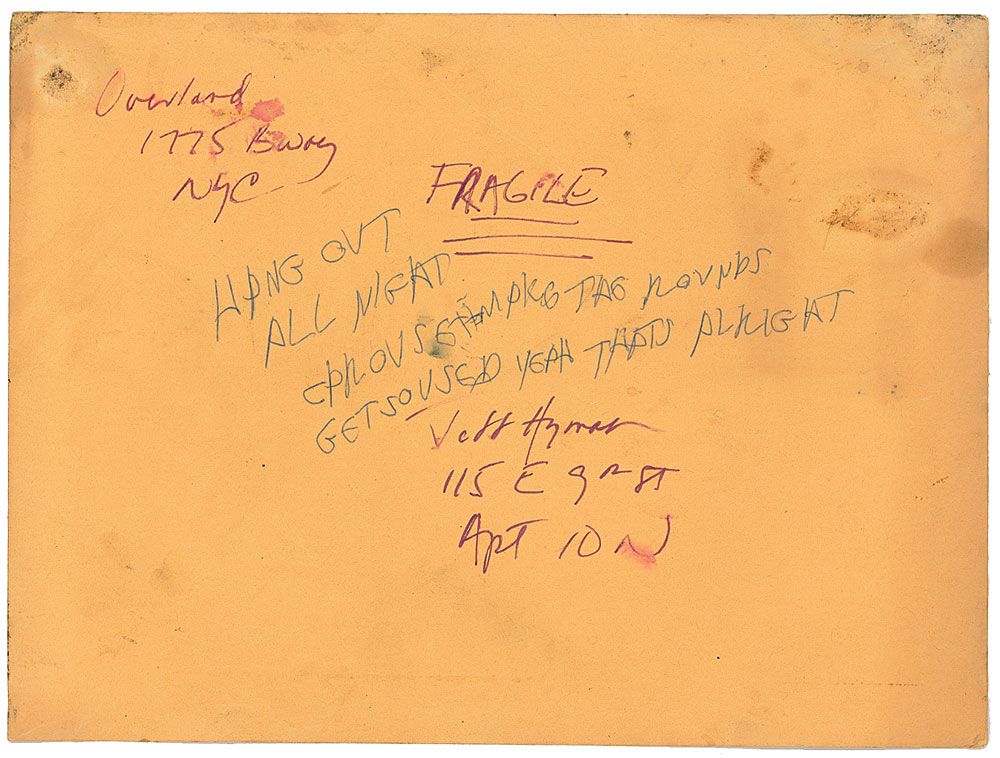 Overland
1775 Bway
NYC
FRAGILE
HANG OUT
ALL NIGHT
CAROUSE MAKE THE ROUNDS
GET SOUSED YEAH THATS ALRIGHT
Jeff Hyman
115 E 9th ST
Apt 10 N